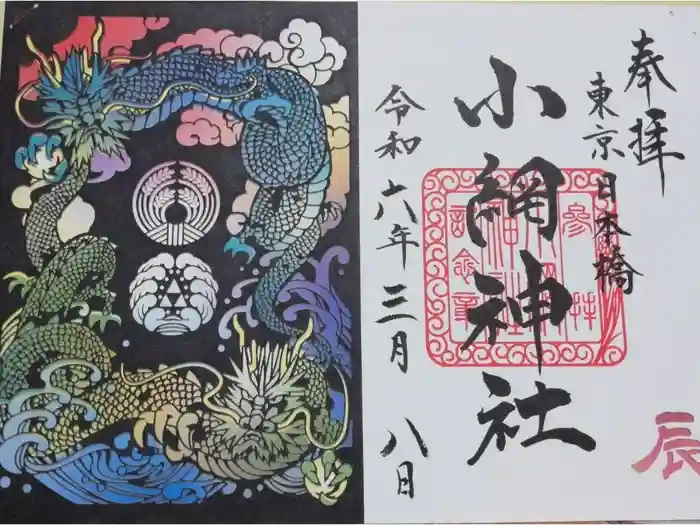 奉拝
東京日本橋
小網神社
令和六年三月八日
辰